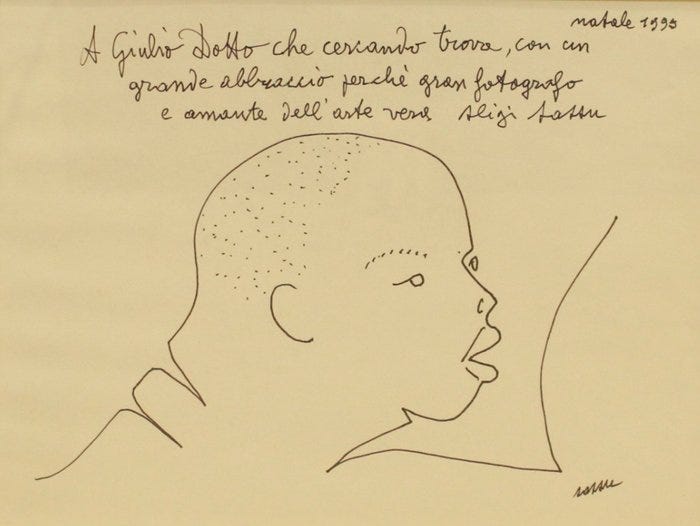 natale 1995
A Giulio Dotto che cercando trova, con un
grande abbraccio perchè gran fotografo
e amante dell'arte vera Aligi Sassu
sassu